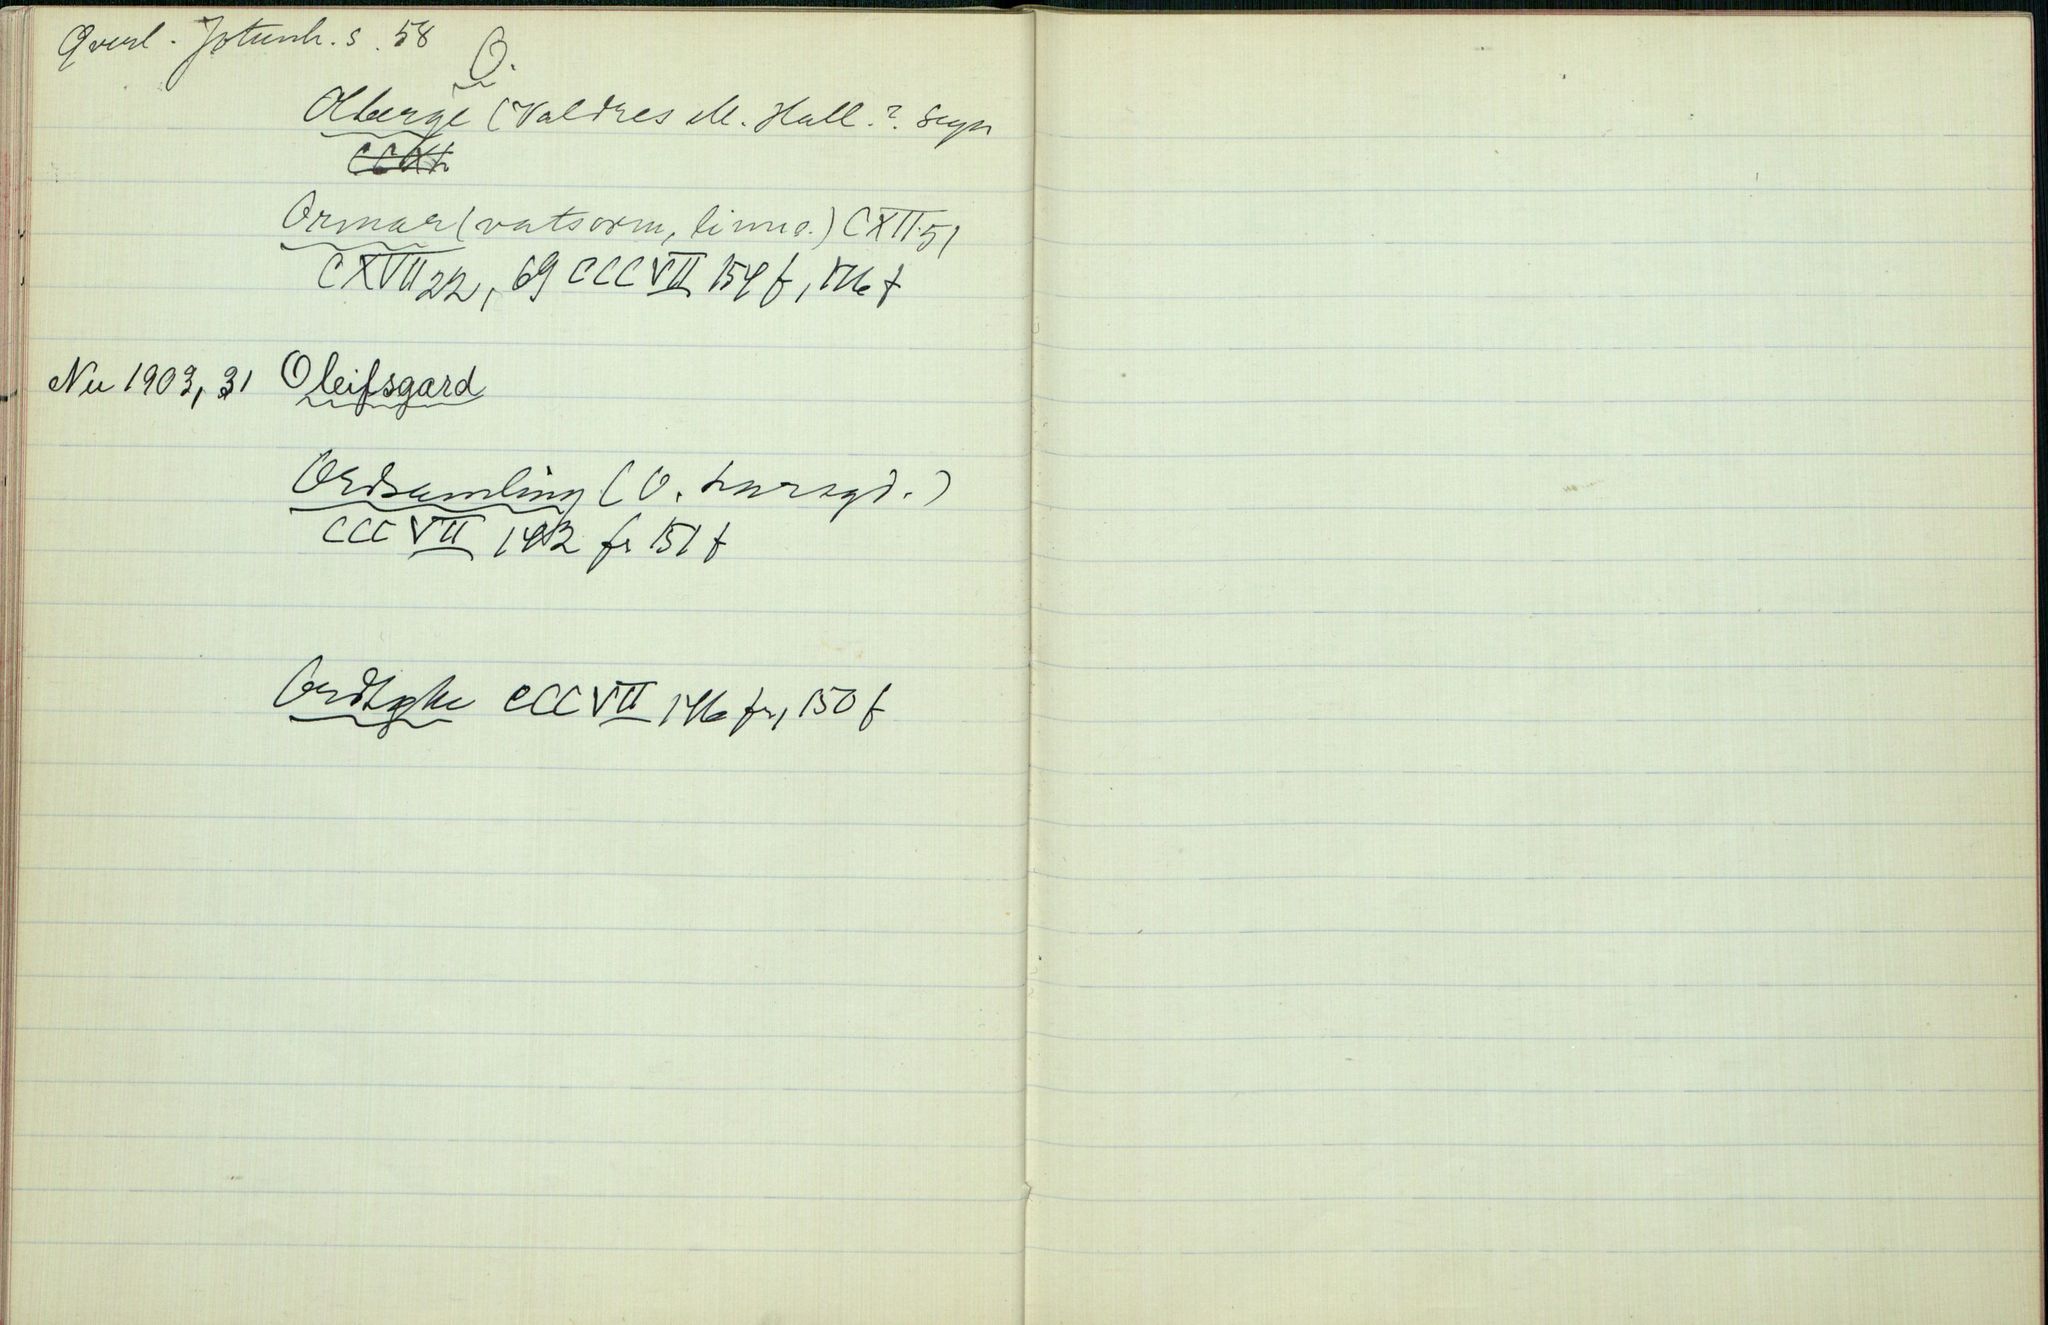 Qverl. Jotunh. s. 58
O.
Olberge (Valdres el. Hall.? segn
Ormar (vatsorm, linno.) CXII.51
CXVII 22, 69 CCCVII 154 f, 176 f
Nu 1903, 31 Oleifsgard
Ordsamling (O.
CCCVII 142 fr 151 f
Ordtøke CCCVII 146 fr, 150 f